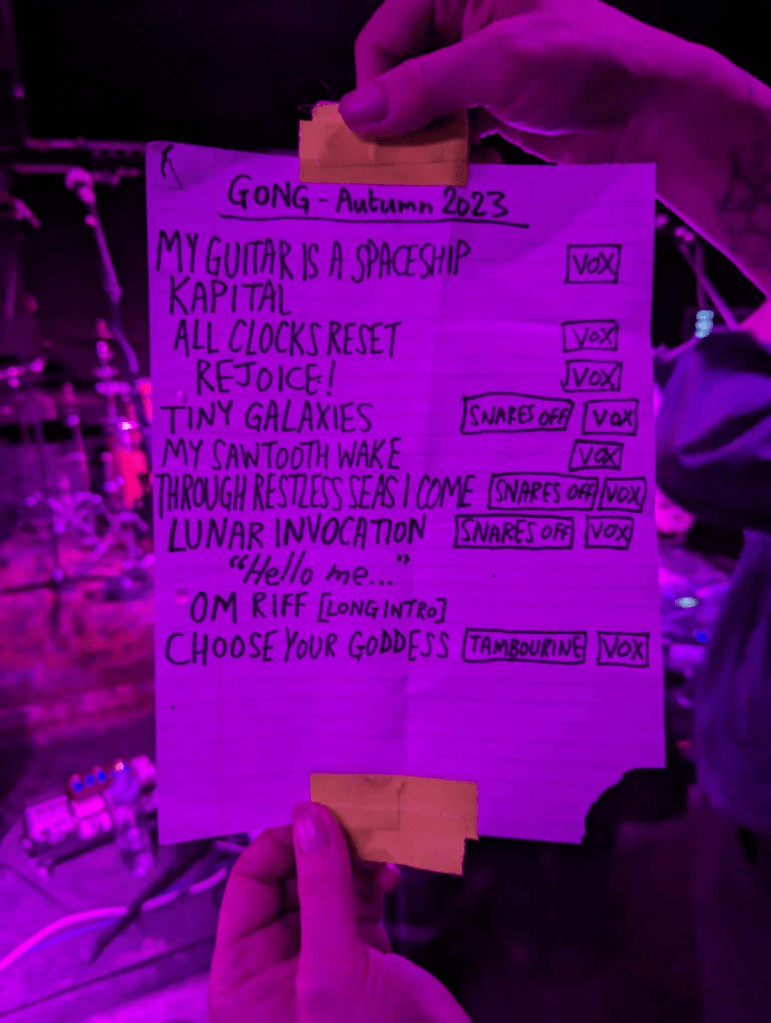 GONG - Autumn 2023
MY GUITAR IS A SPACESHIP VOX
KAPITAL
ALL CLOCKS RESET VOX
REJOICE! VOX
TINY GALAXIES SNARES OFF VOX
MY SAWTOOTH WAKE VOX
THROUGH RESTLESS SEAS I COME SNARES OFF VOX
LUNAR INVOCATION SNARES OFF VOX
"Hello me..."
OM RIFF [LONG INTRO]
CHOOSE YOUR GODDESS TAMBOURINE VOX